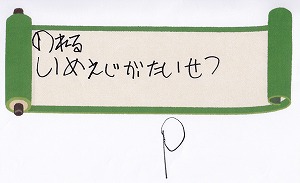 のれる
しいめえじがたいせつ
p